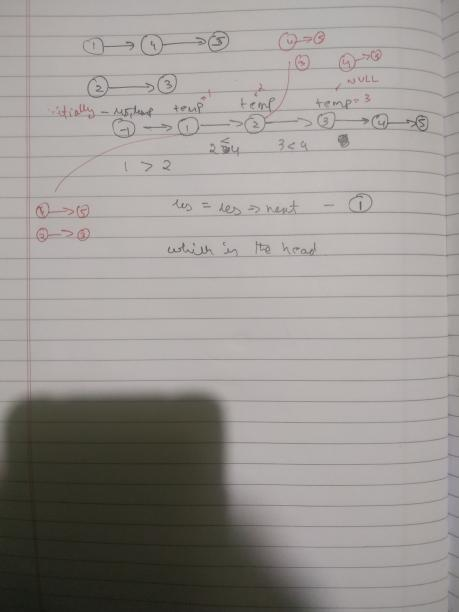 1 → 4 → 5
4 → 5
3
4 → 5
2 → 3
NULL
initially - res, temp temp 1 temp 2 temp = 3
-1 → 1 → 2 → 3 → 4 → 5
2 < 4 3 < 4
1 > 2
4 → 5
2 → 3
res = res → next - 1
which is the head